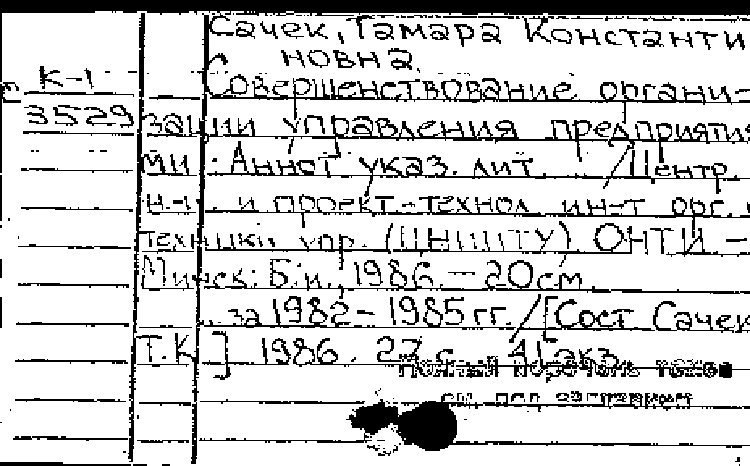 Сачек, Тамара Константи
новна
К-1
Совершенствование органи-
3529
зации управления предприятия
ми : Аннот. указ. лит. / Центр.
н.-и. и проект.-технол. ин-т орг. и
техники упр. (ЦНИИТУ). ОНТИ. -
Минск: Б.и., 1986. - 20 см.
за 1982 - 1985 гг. / [Сост. Сачек
Т.К.] 1986. 27 с.
Полный перечень томов
см. под заглавием